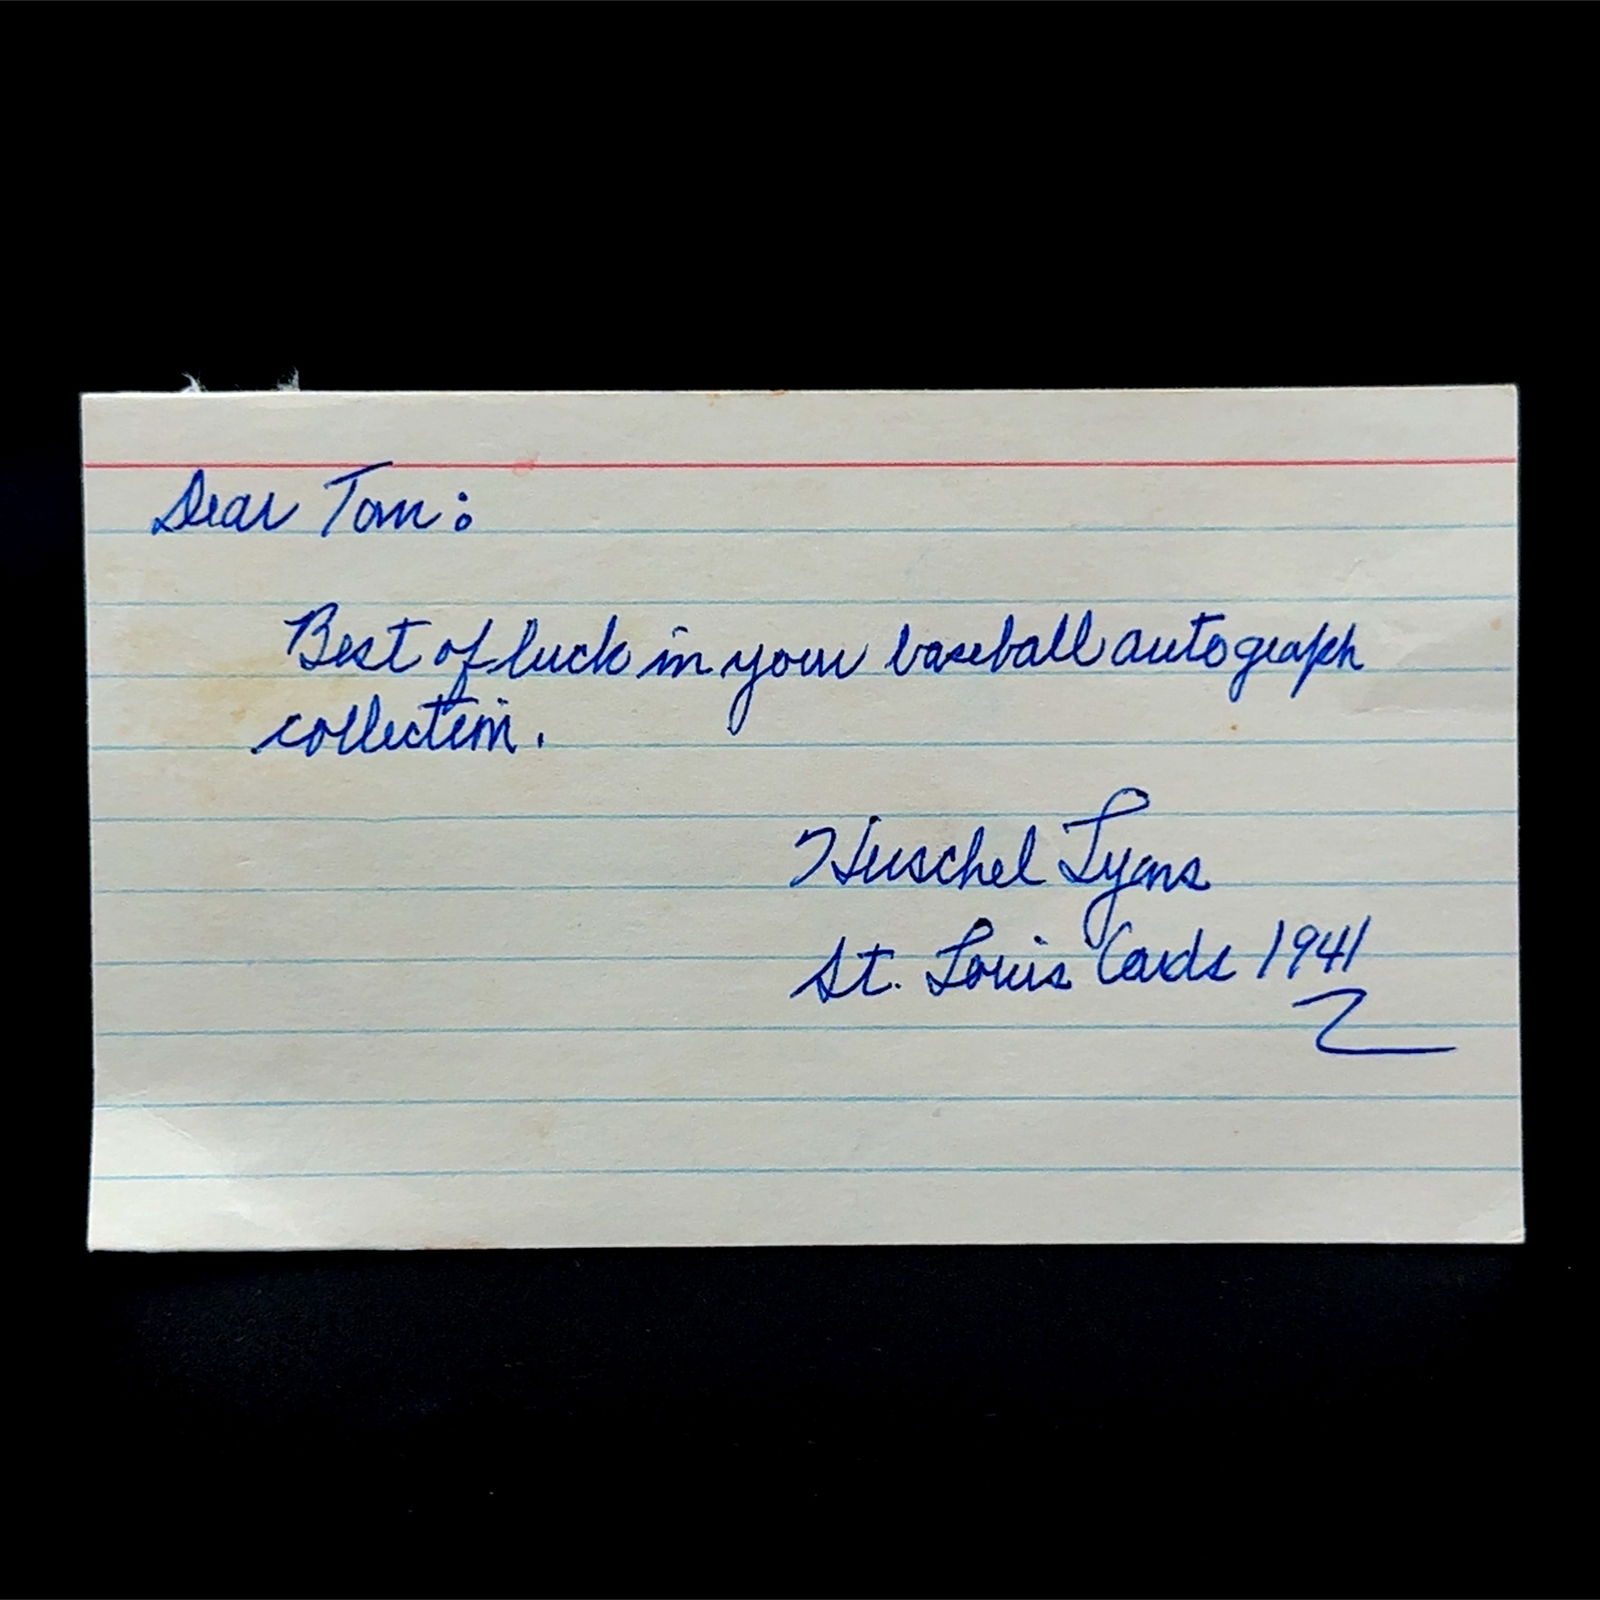 Dear Tom:
Best of luck in your baseball autograph
collection.
Herschel Lyons
St. Louis Cards 1941